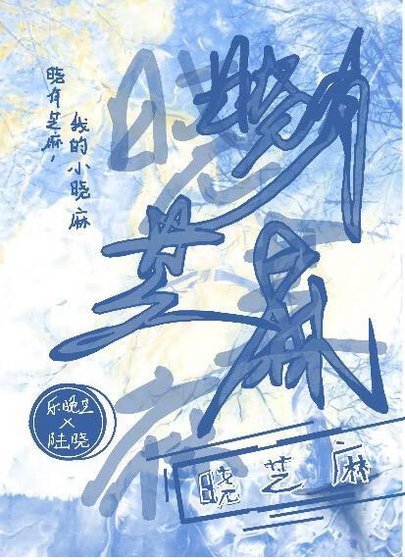 晓有芝麻，
我的小晓麻
晓有
芝麻
乐晚芝
×
陆晓
晓芝麻